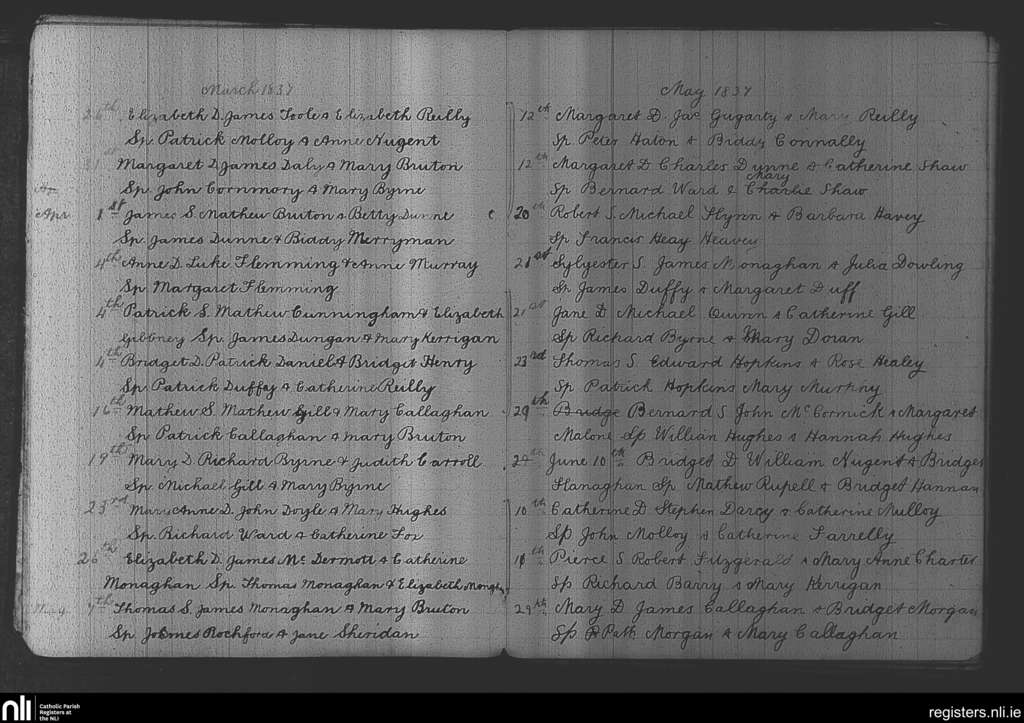 March 1837
26th Elizabeth D. James Toole & Elizabeth Reilly
Sp. Patrick Molloy & Anne Nugent
31st Margaret D. James Daly & Mary Bruton
Sp. John Cornmory & Mary Byrne
Apr 1st James S. Mathew Bruton & Betty Dunne
Sp. James Dunne & Biddy Merryman
4th Anne D. Luke Flemming & Anne Murray
Sp. Margaret Flemming
4th Patrick S. Mathew Cunningham & Elizabeth
Gibbney Sp. James Dungan & Mary Kerrigan
4th Bridget D. Patrick Daniel & Bridget Henry
Sp. Patrick Duffey & Catherine Reilly
16th Mathew S. Mathew Gill & Mary Callaghan
Sp. Patrick Callaghan & Mary Bruton
19th Mary D Richard Byrne & Judith Carroll
Sp. Michael Gill & Mary Byrne
23rd Mary Anne D. John Doyle & Mary Hughes
Sp. Richard Ward & Catherine Fox
26th Elizabeth D. James Mc Dermott & Catherine
Monaghan Sp. Thomas Monaghan & Elizabeth
May 7th Thomas S. James Monaghan & Mary Bruton
Sp. Rochford & Jane Sheridan
May 1837
12th Margaret D. Jas Gugarty & Mary Reilly
Sp Peter Haton & Biddy Connally
12th Margaret D Charles Dynne & Catherine Shaw
Sp Bernard Ward & Charlie Mary Shaw
20th Robert S. Michael Flynn & Barbara Havey
Sp Francis Heay Heavey
21st Sylyester S. James Monaghan & Julia Dowling
Sp James Duffy & Margaret Duff
21st Jane D Michael Quinn & Catherine Gill
Sp Richard Byrne & Mary Doran
23rd Thomas S. Edward Hopkins & Rose Healey
Sp Patrick Hopkins Mary Murphy
29th Bridge Bernard S John Mc Cormick & Margaret
Malone Sp William Hughes & Hannah Hughes
June 10th Bridget D William Nugent & Bridget
Flanaghan Sp Mathew Rupell & Bridget Hannan
10th Catherine D Stephen Darcy & Catherine Mulloy
Sp John Molloy & Catherine Farrelly
Pierce S Robert Fitzgerald & Mary Anne Charter
Sp Richard Barry & Mary Kerrigan
29th Mary D James Callaghan & Bridget Morgan
Sp Patk Morgan & Mary Callaghan
nli Catholic Parish
Registers at
the NLI
registers.nli.ie